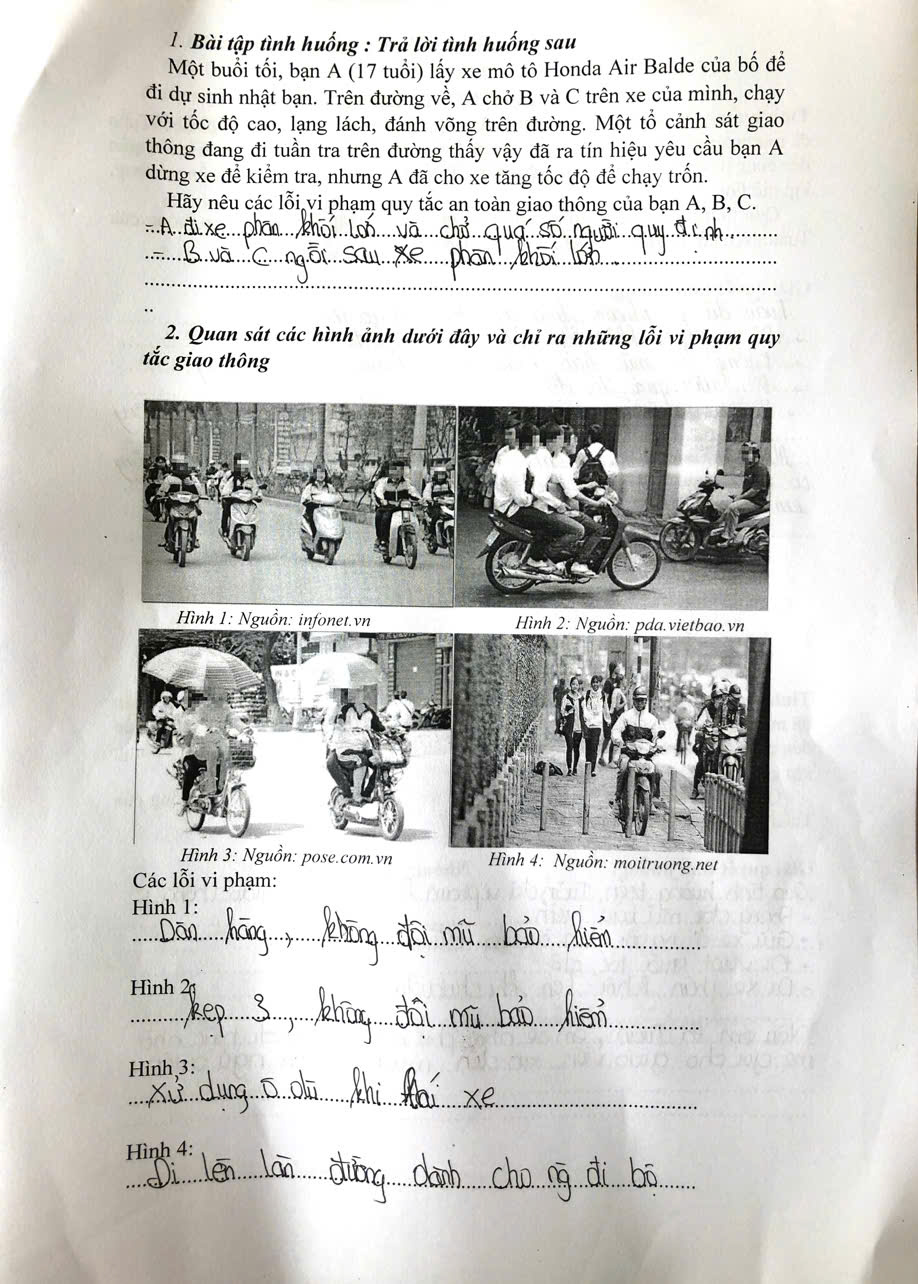 1. Bài tập tình huống : Trả lời tình huống sau
Một buổi tối, bạn A (17 tuổi) lấy xe mô tô Honda Air Balde của bố để
đi dự sinh nhật bạn. Trên đường về, A chở B và C trên xe của mình, chạy
với tốc độ cao, lạng lách, đánh võng trên đường. Một tổ cảnh sát giao
thông đang đi tuần tra trên đường thấy vậy đã ra tín hiệu yêu cầu bạn A
dừng xe để kiểm tra, nhưng A đã cho xe tăng tốc độ để chạy trốn.
Hãy nêu các lỗi vi phạm quy tắc an toàn giao thông của bạn A, B, C.
- A đi xe phân khối lớn và chở quá số người quy định
- B và C ngồi sau xe phân khối lớn
2. Quan sát các hình ảnh dưới đây và chỉ ra những lỗi vi phạm quy
tắc giao thông
Hình 1: Nguồn: infonet.vn
Hình 2: Nguồn: pda.vietbao.vn
Hình 3: Nguồn: pose.com.vn
Hình 4: Nguồn: moitruong.net
Các lỗi vi phạm:
Hình 1:
Dàn hàng, không đội mũ bảo hiểm
Hình 2:
kẹp 3, không đội mũ bảo hiểm
Hình 3:
Xử dụng ô dù khi lái xe
Hình 4:
Đi lên làn đường dành cho ng đi bộ